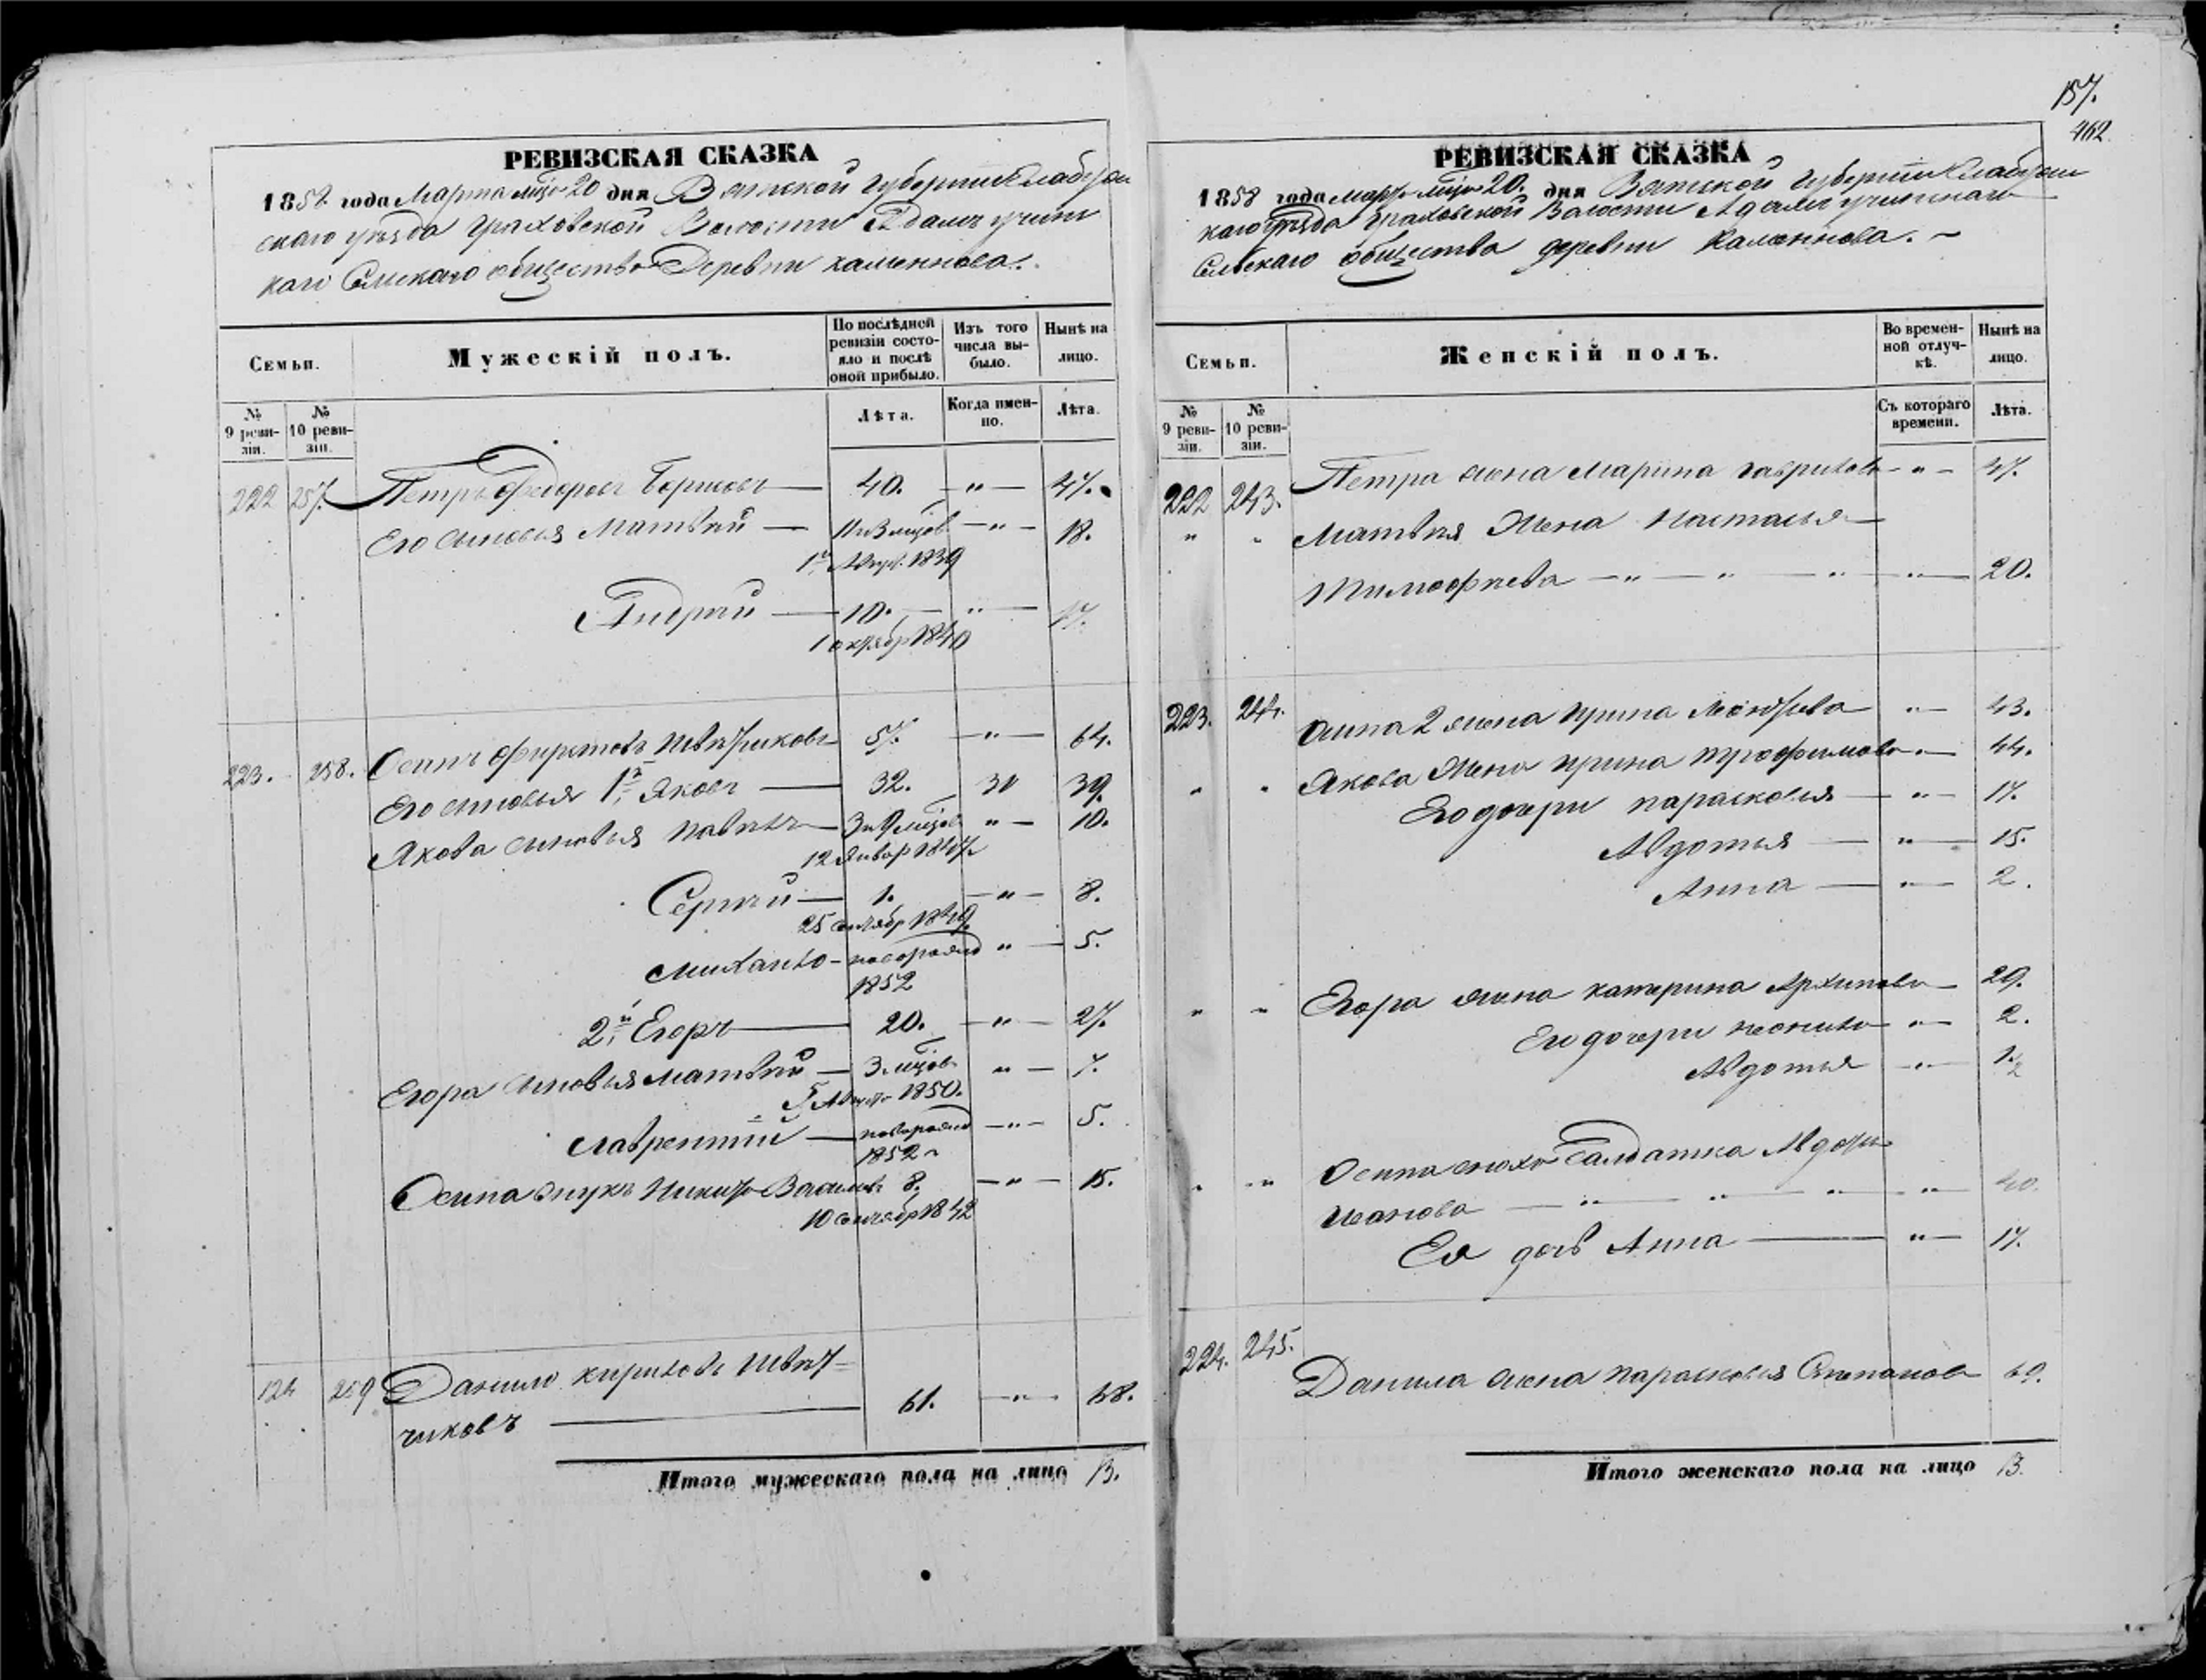 157.
462
РЕВИЗСКАЯ СКАЗКА
1858 года Марта мца 20 дня Вятской губернии Елабуж
скаго уѣзда Граховской Волости Адамъ учин
каго Сельскаго общества Деревни каменнова.
Семьи.
Мужескій полъ.
По послѣдней ревизіи состояло и послѣ оной прибыло.
Изъ того числа выбыло.
Нынѣ на лицо.
№ 9 ревизіи.
№ 10 ревизіи.
Лѣта.
Когда именно.
Лѣта.
222 257. Петръ Федоровъ Борисовъ — 40. — " — 47.
Его сыновья Матвѣй — 11 и 3 мцов — " — 18.
1й Август. 1839
Андрей — 10. — " — 17.
1 октябр 1840
223. 258. Осипъ Фирстовъ 57. — " — 64.
Его сыновья 1й Яковъ — 32. 30 39.
Якова сыновья Павелъ — 3 и 9 мцов " — 10.
12 Январ 1847
Сергѣй — 1. — " — 8.
25 сентябр 1849.
Михаило — новорожд " — 5.
1852
2й Егоръ — 20. — " — 27.
Егора сыновья Матвѣй — 3 мцов " — 7.
5 Августа 1850.
Лаврентій — новорожд — " — 5.
1852
Осипа внукъ Никита Васильевъ 8. — " — 15.
10 сентябр 1842
124 259 Данило Кириловъ Швѣт=
чиковъ — 61. — " — 68.
Итого мужескаго пола на лицо 13.
РЕВИЗСКАЯ СКАЗКА
1858 года Марта мца 20. дня Вятской губерніи Елабуж
каго уѣзда Граховской Волости Адамъ учинскаго
Сельскаго общества деревни Каменнова. ~
Семьи.
Женскій полъ.
Во временной отлучкѣ.
Нынѣ на лицо.
№ 9 ревизіи.
№ 10 ревизіи.
Съ котораго времени.
Лѣта.
222 243. Петра жена Марина Гаврилова — " — 47.
" " Матвѣя Жена Настасья —
Тимофѣева — " — " — " — " — 20.
223. 244. Осипа 2 жена Ирина " — 43.
" " Якова Жена Ирина Трофимова " — 44.
Его дочери Парасковья — " — 17.
Авдотья — " — 15.
Анна — " — 2.
" " Егора жена Катерина Архипова — 29.
Его дочери " — 2.
Авдотья — " — 1/2
" " Осипа сноха Салдатка Авдотья
Иванова — " — " — " — " — 40.
Ея дочь Анна — " — 17.
224. 245. Данила жена Парасковья Степанова 69.
Итого женскаго пола на лицо 13.